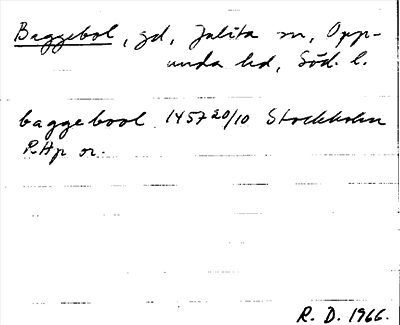 Baggebol, gd, Julita sn, Opp-
unda hd, Söd. l.
baggebool 1457 20/10 Stockholm
P. Hp or.
R. D. 1966.